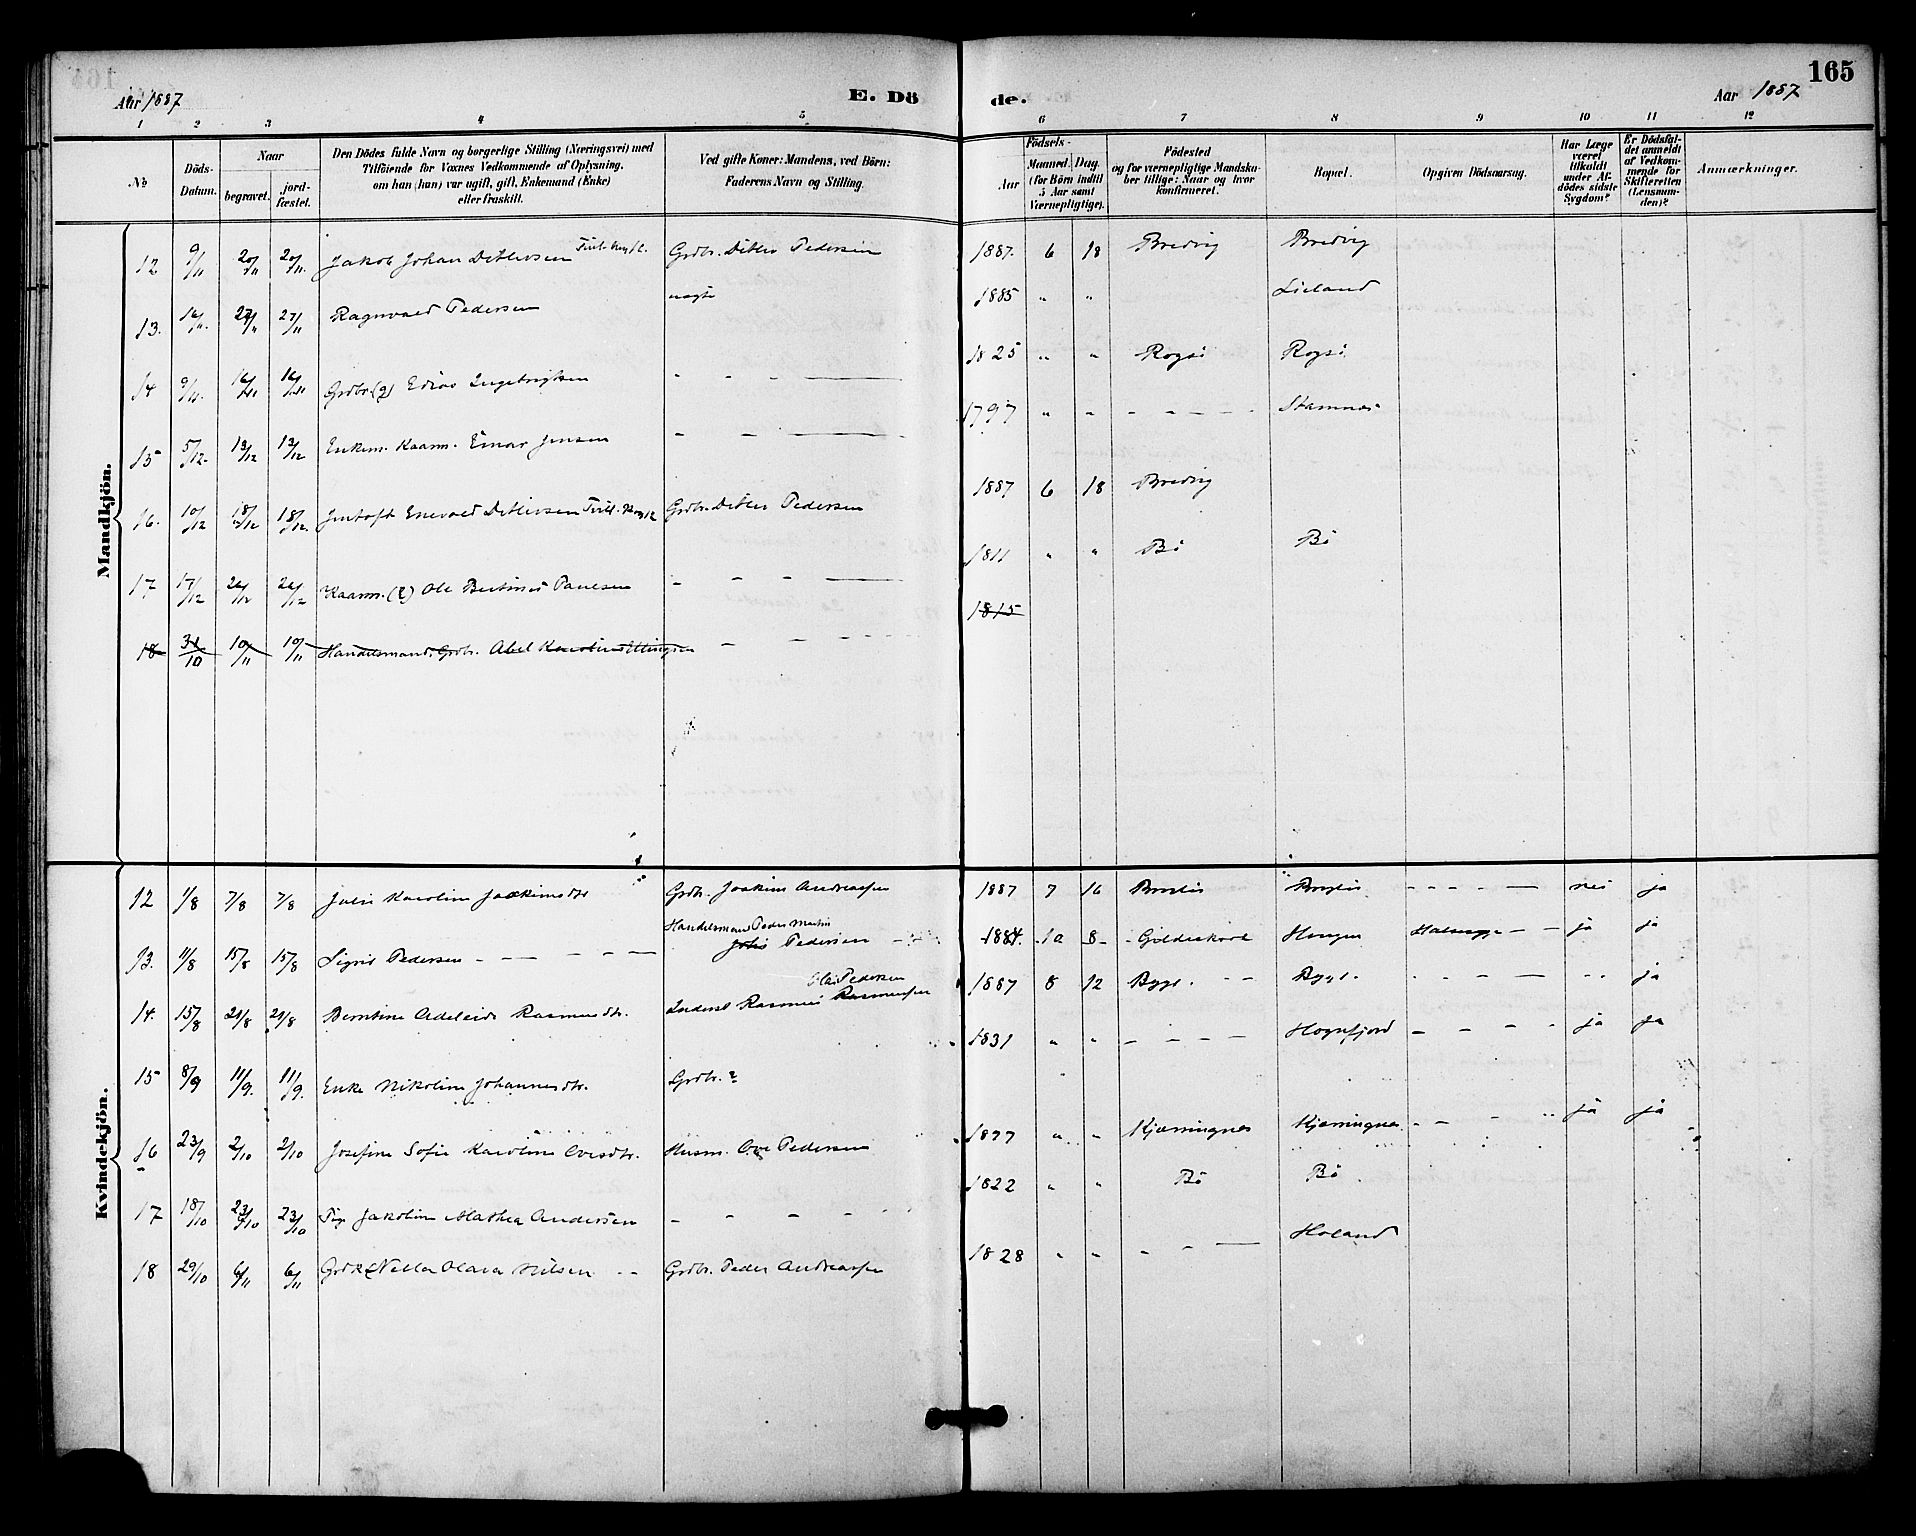 165
Aar 1887
E. Dö
de.
Aar 1887
1 2 3 4 5 6 7 8 9 10 11 12
No
Döds-Datum.
Naar
begravet.
jord-fæstet.
Den Dödes fulde Navn og borgerlige Stilling (Næringsvei) med
Tilföiende for Voxnes Vedkommende af Oplysning,
om han (hun) var ugift, gift, Enkemand (Enke)
eller fraskilt.
Ved gifte Koner: Mandens, ved Börn:
Faderens Navn og Stilling.
Födsels-
Aar
Maaned. Dag.
(for Börn indtil
5 Aar samt
Værnepligtige).
Födested
og for værnepligtige Mandska-
ber tillige: Naar og hvor
konfirmeret.
Bopæl.
Opgiven Dödsaarsag.
Har Læge
været
tilkaldt
under Af-
dödes sidste
Sygdom?
Er Dödsfal-
det anmeldt
af Vedkom-
mende for
Skifteretten
(Lensman-
den)?
Anmærkninger.
Mandkjön.
12 9/11 20/11 20/11 Jakob Johan Detlevsen Grdbr. Detlev Pedersen 1887. 6 18 Bredvig Bredvig
13. 16/11. 27/11 27/11 Ragnvald Pedersen uægte 1885 " " Lieland
14 9/11. 16/11 16/11 Grdbr. (g) Edias Ingebrigtsen - - - — 1825 " " Rogsö Rogsö
15 5/12. 13/12 13/12 Enkem. Kaarm. Einar Jensen - - — 1797 " " - - - - Stamnes
16. 10/12 18/12 18/12. Enevold Detlevsen Grdbr. Detlev Pedersen 1887 6 18 Bredvig
17 17/12 26/12 26/12 Kaarm. Ole Paulsen - - - — 1811 " " Bö Bö
18 31/10 10/11 10/11 Handelsmand, Grdbr. Abel Ellingsen - - - - 1815
Kvindekjön.
12 1/8 7/8 7/8 Julie Karoline Joakimsdtr Grdbr. Joakim Andreassen 1887 7 16 - - - - — nei ja
13. 11/8 15/8 15/8 Sigrid Pedersen - - - - - Handelsmand Peder Martin Pedersen 1884. 10 8 ja ja
14. 15/8 21/8 21/8 Berntine Adelaide Rasmusdtr. Inderst Rasmus Rasmussen Ole Pedersen 1887 8 12 Bygt. - - Bygt. - - - — - - ja
15 8/9 11/9. 11/9. Enke Nikoline Johannesdtr. Grdbr. ? 1831 " " - - - - Hognfjord - - - - ja ja
16 23/9 2/10 2/10 Josefine Sofie Karoline Ovesdtr. Husm. Ove Pedersen 1877 " " Kjærringnes Kjærringnes - - - ja ja
17 18/10 23/10 23/10 Jakoline Mathea Andersen - - - - 1822 " " Bö Bö
18 29/10 6/11 6/11 Olava Nilsen - - Grdbr. Peder Andreassen 1828 " " - - — Holand